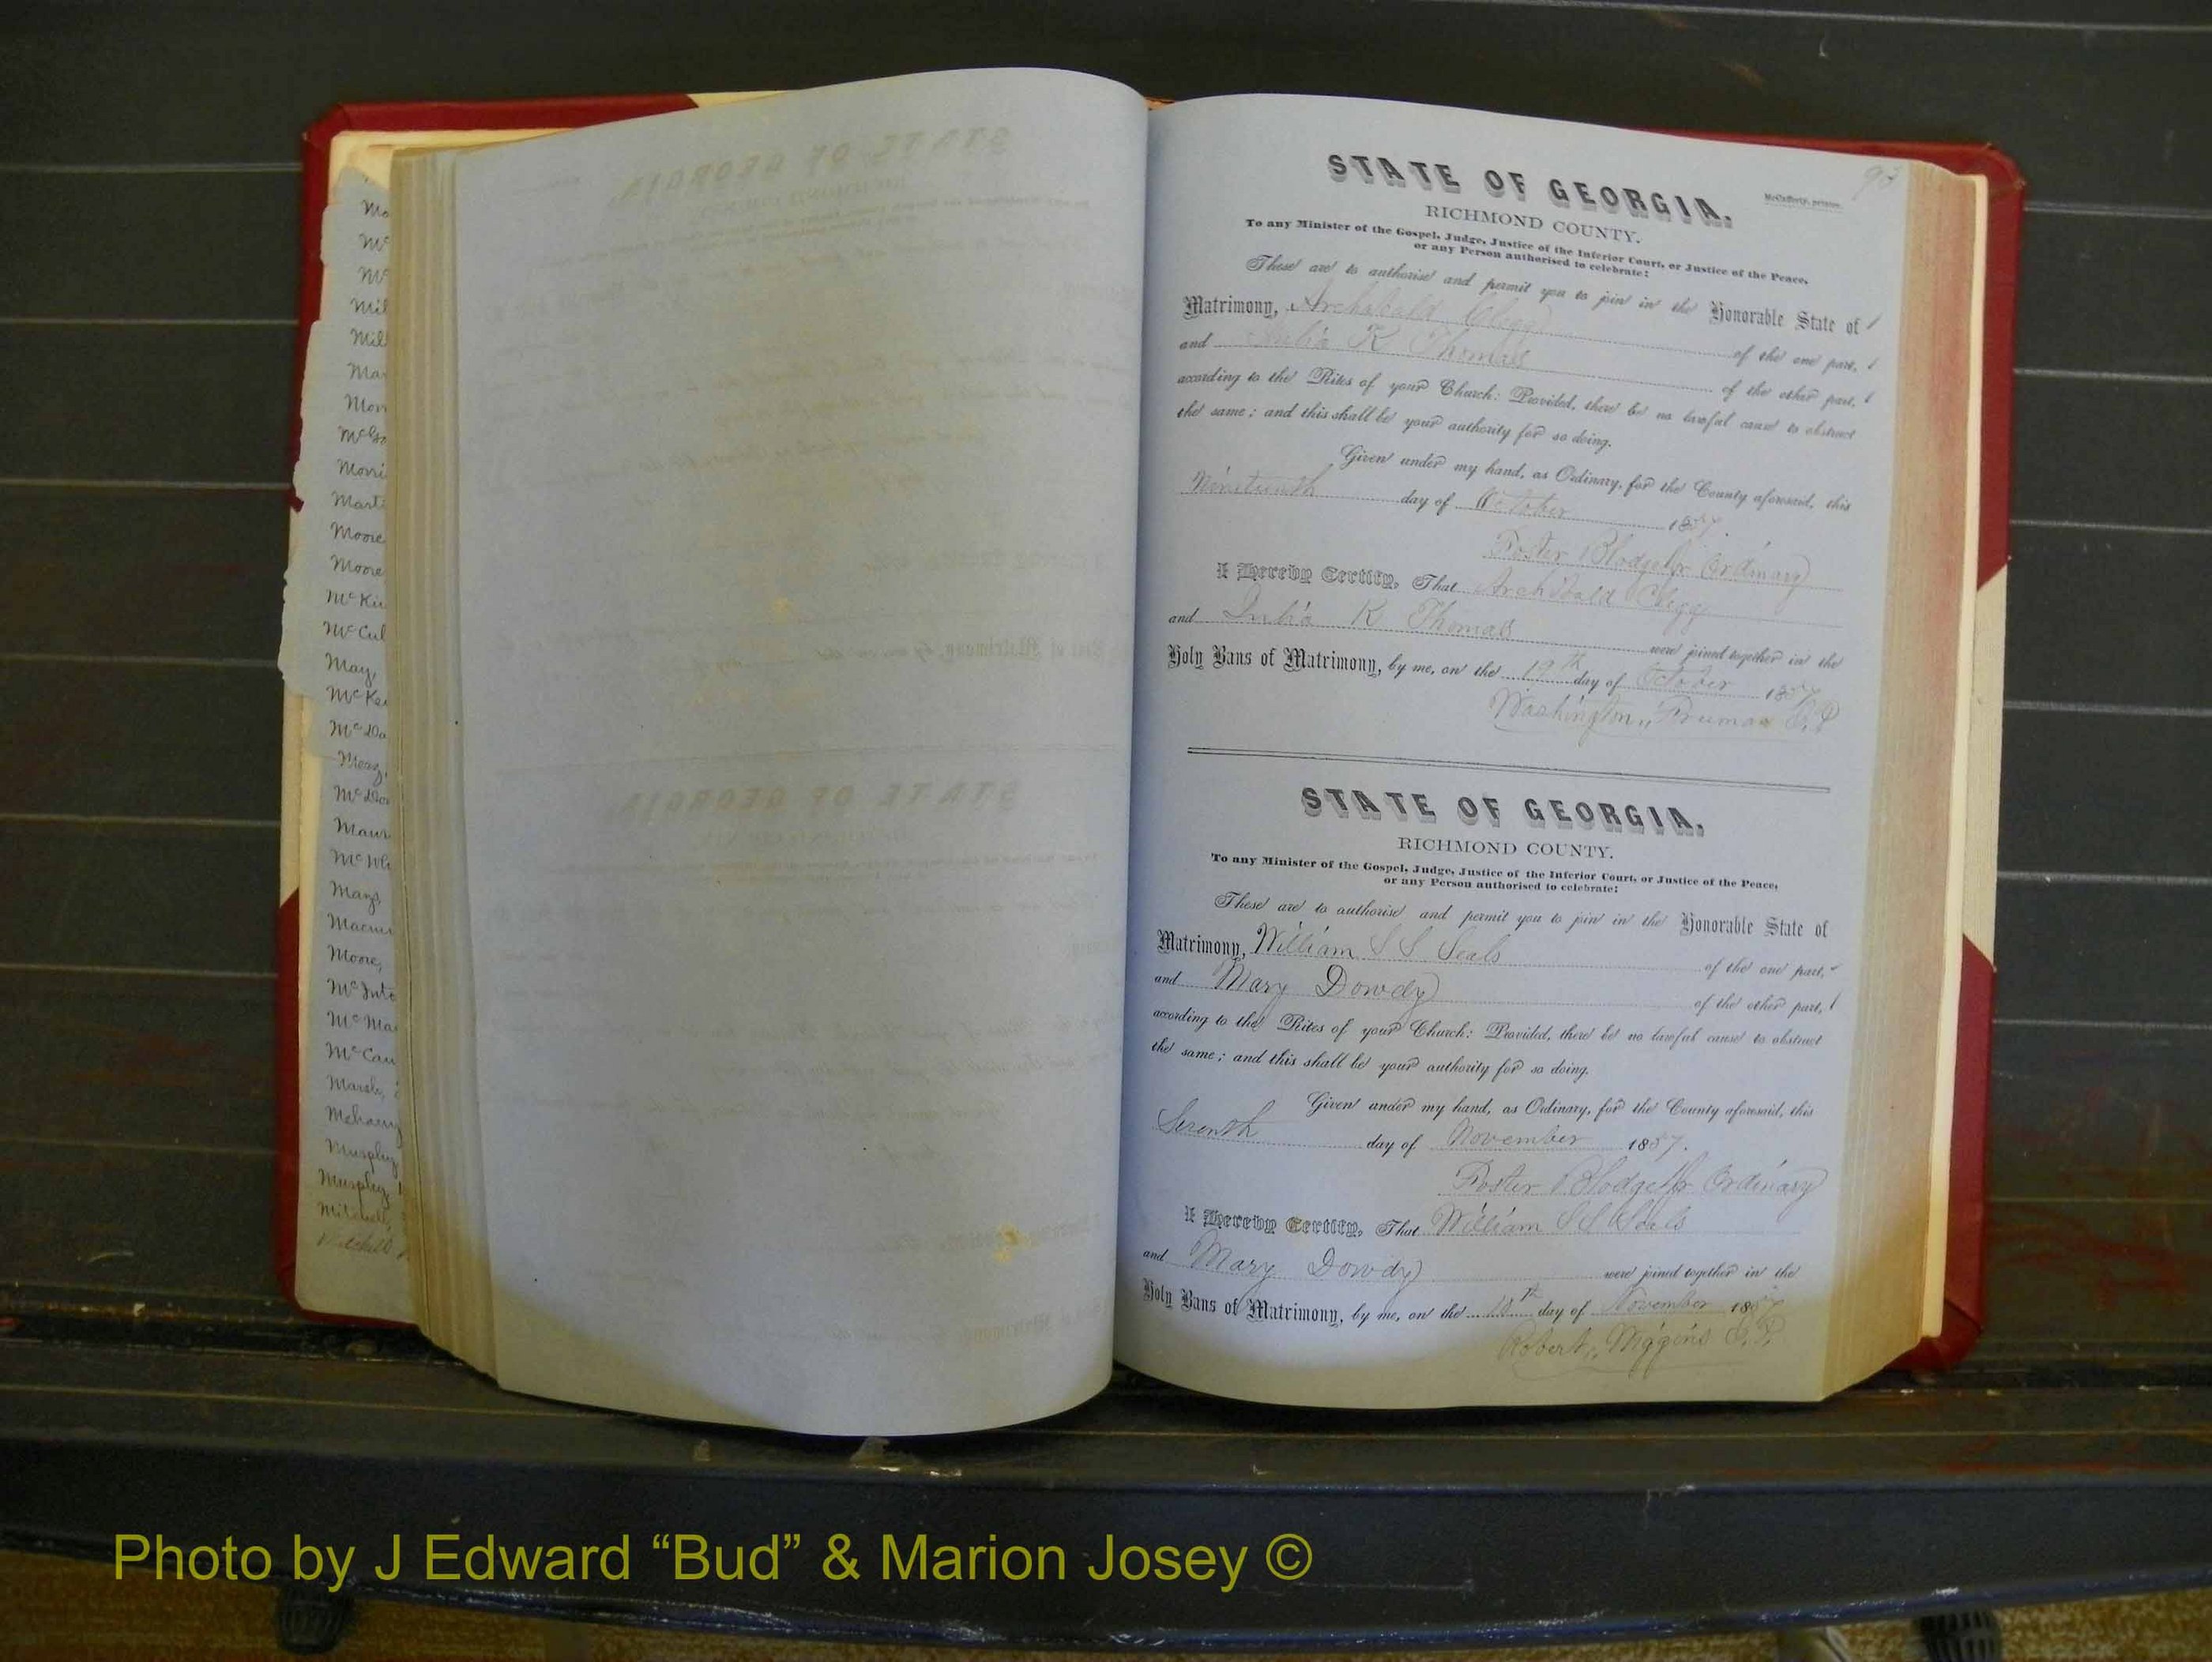 Mc
Mc
Mil
Mill
Mar
Morr
McGo
Morri
Marti
Moore
Moore
McKin
McCul
May,
McKe
McDa
McDon
Maur
McWh
Mays
Macmu
Moore,
McInto
McMa
McCan
Marsh,
Murphey
Murphey,
Mitchell,
Mitchell
93
STATE OF GEORGIA,
McCafferty, printer.
RICHMOND COUNTY.
To any Minister of the Gospel, Judge, Justice of the Inferior Court, or Justice of the Peace,
or any Person authorised to celebrate:
These are to authorise and permit you to join in the Honorable State of
Matrimony, Archibald Clegg of the one part,
and Julia K Thomas of the other part,
according to the Rites of your Church: Provided, there be no lawful cause to obstruct
the same; and this shall be your authority for so doing.
Given under my hand, as Ordinary, for the County aforesaid, this
Nineteenth day of October 1857.
Foster Blodget Jr Ordinary
I Hereby Certify, That Archibald Clegg
and Julia K Thomas were joined together in the
Holy Bans of Matrimony, by me, on the 19th day of October 1857
Washington J.P
STATE OF GEORGIA,
RICHMOND COUNTY.
To any Minister of the Gospel, Judge, Justice of the Inferior Court, or Justice of the Peace,
or any Person authorised to celebrate:
These are to authorise and permit you to join in the Honorable State of
Matrimony, William S S Seals of the one part,
and Mary Dowdy of the other part,
according to the Rites of your Church: Provided, there be no lawful cause to obstruct
the same; and this shall be your authority for so doing.
Given under my hand, as Ordinary, for the County aforesaid, this
Seventh day of November 1857.
Foster Blodget Jr Ordinary
I Hereby Certify, That William S S Seals
and Mary Dowdy were joined together in the
Holy Bans of Matrimony, by me, on the day of November 1857
Robert J.P.
Photo by J Edward “Bud” & Marion Josey ©